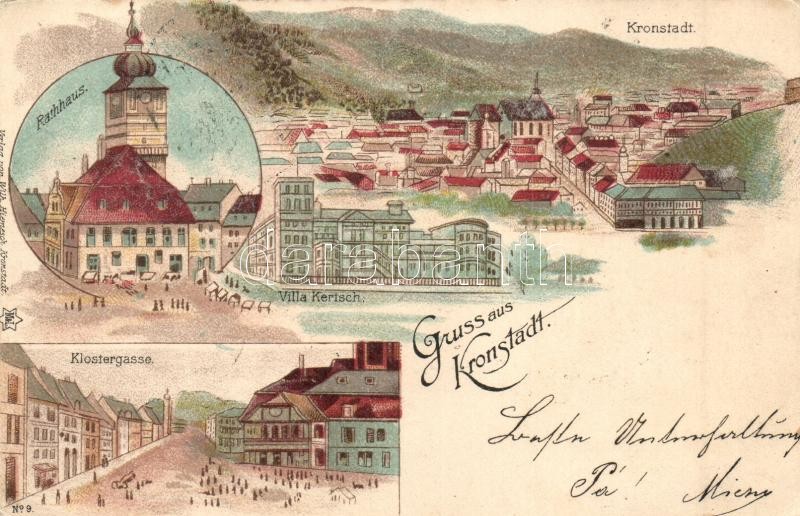 Kronstadt.
Rathhaus.
Villa Kertsch.
Gruss aus
Kronstadt.
Klostergasse.
Unterhaltung
Pá!
No 9.
Verlag von Wilh. Hiemesch, Kronstadt
darabanth